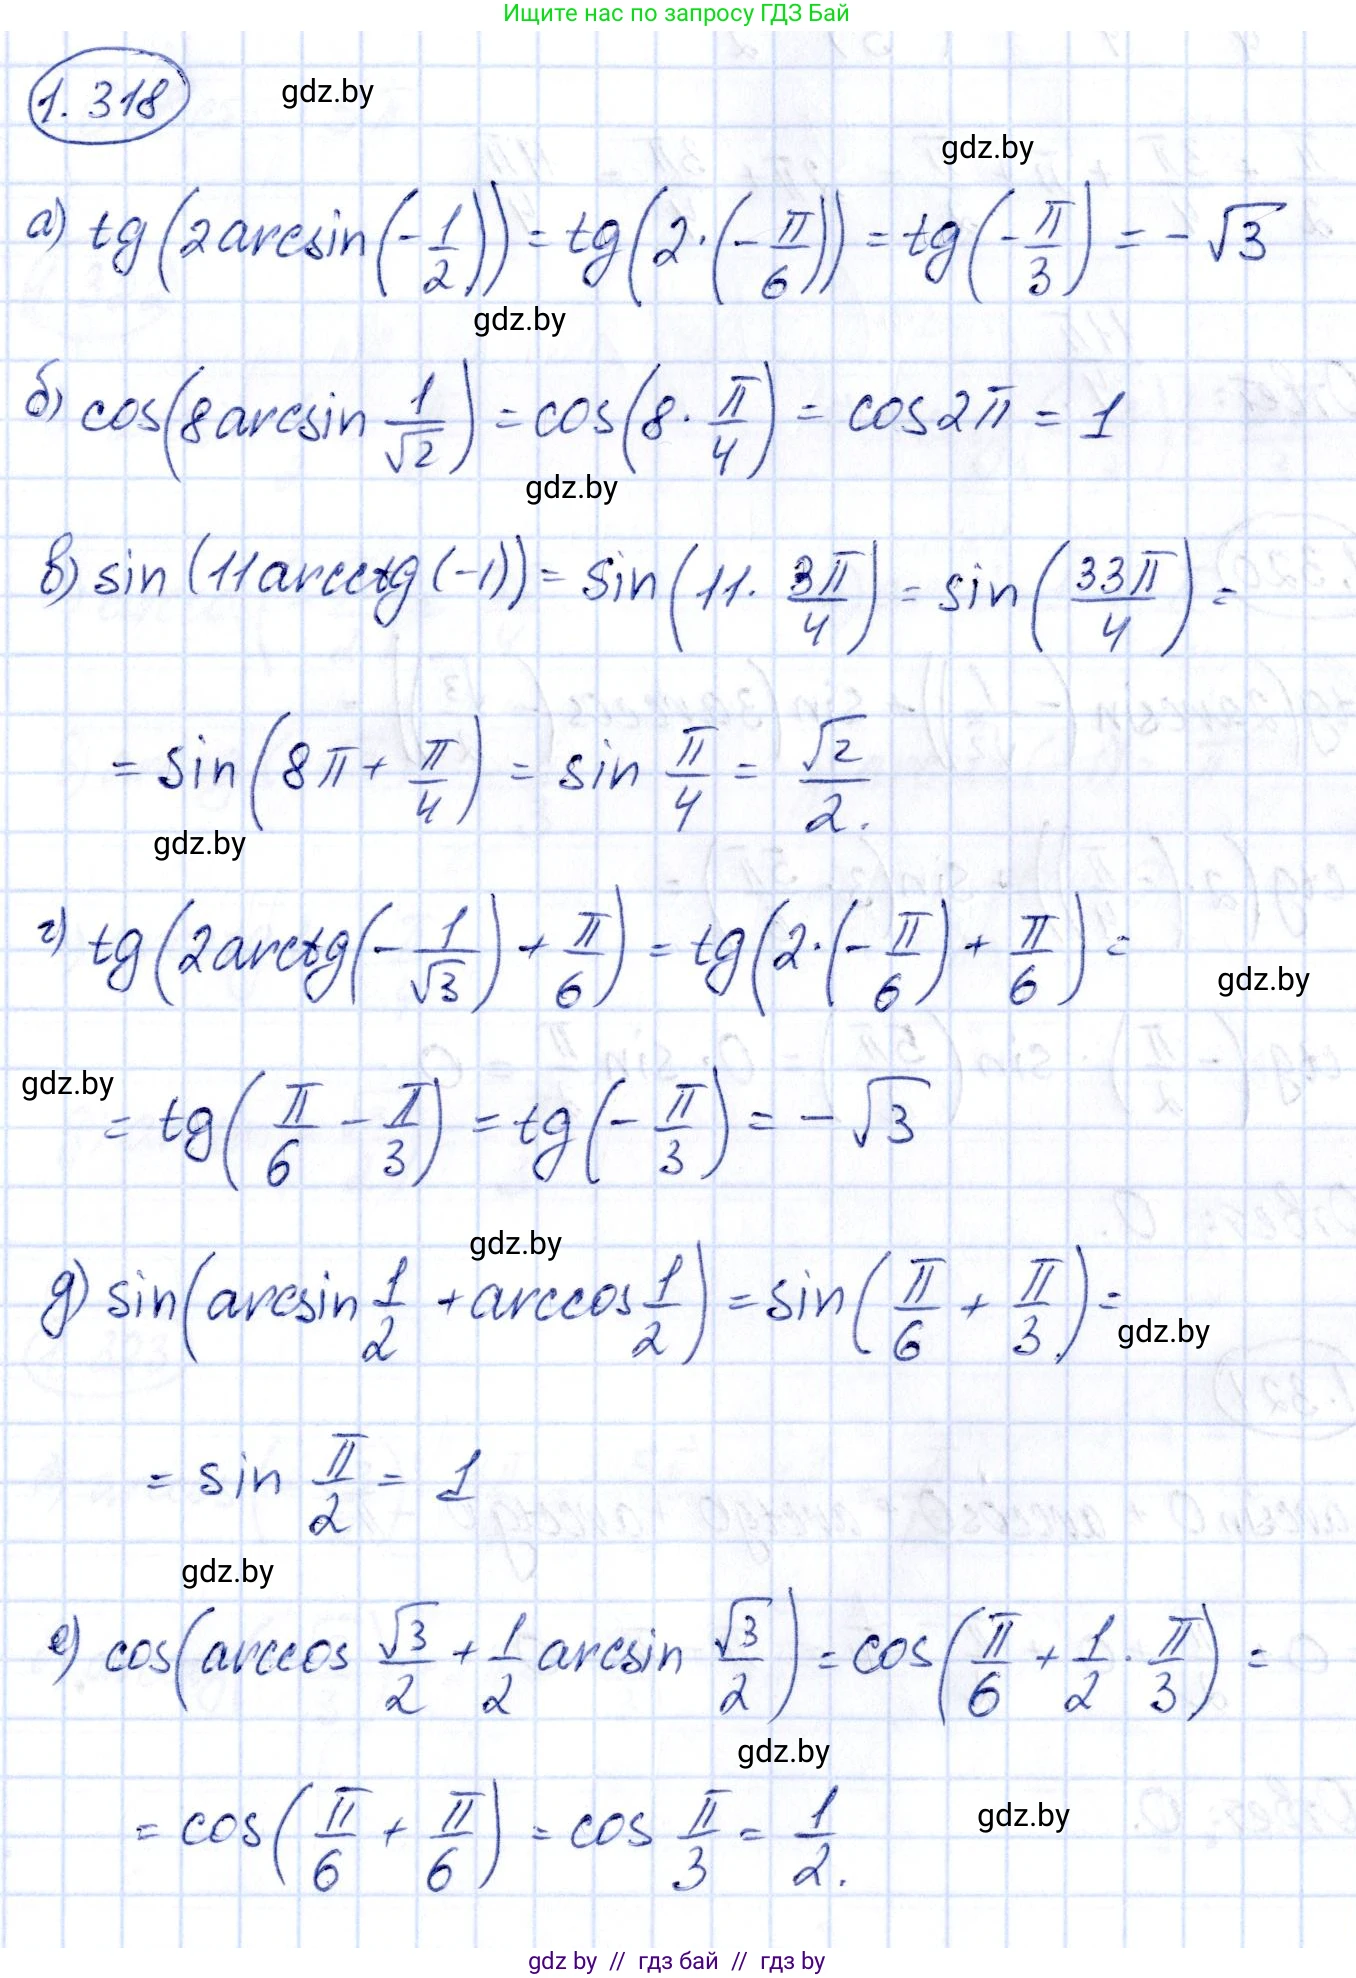 Ищите нас по запросу ГДЗ Бай
1.318 gdz.by
gdz.by
а) tg(2arcsin(-1/2)) = tg(2·(-π/6)) = tg(-π/3) = -√3
gdz.by
б) cos(8arcsin 1/√2) = cos(8·π/4) = cos2π = 1
gdz.by
в) sin(11arcctg(-1)) = sin(11·3π/4) = sin(33π/4) =
= sin(8π + π/4) = sin π/4 = √2/2.
gdz.by
г) tg(2arctg(-1/√3) + π/6) = tg(2·(-π/6) + π/6) =
gdz.by
gdz.by
= tg(π/6 - π/3) = tg(-π/3) = -√3
gdz.by
д) sin(arcsin 1/2 + arccos 1/2) = sin(π/6 + π/3) =
gdz.by
= sin π/2 = 1
gdz.by
е) cos(arccos √3/2 + 1/2 arcsin √3/2) = cos(π/6 + 1/2·π/3) =
gdz.by
= cos(π/6 + π/6) = cos π/3 = 1/2.
gdz.by
gdz by // гдз бай // гдз by